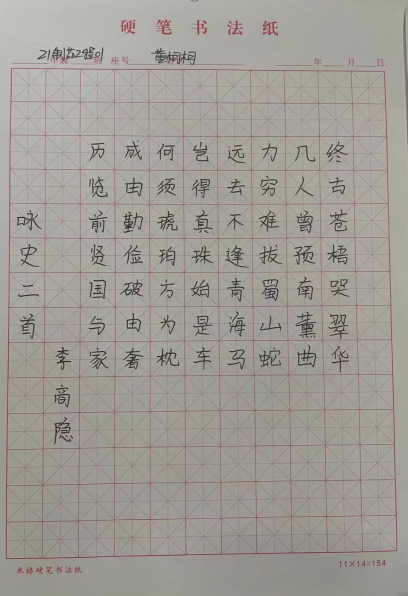 硬笔书法纸
21制药工程01 班 座号 董柯柯 年 月 日
咏史二首
李商隐
历览前贤国与家
成由勤俭破由奢
何须琥珀方为枕
岂得真珠始是车
远去不逢青海马
力穷难拔蜀山蛇
几人曾预南薰曲
终古苍梧哭翠华
米格硬笔书法纸
11×14=154